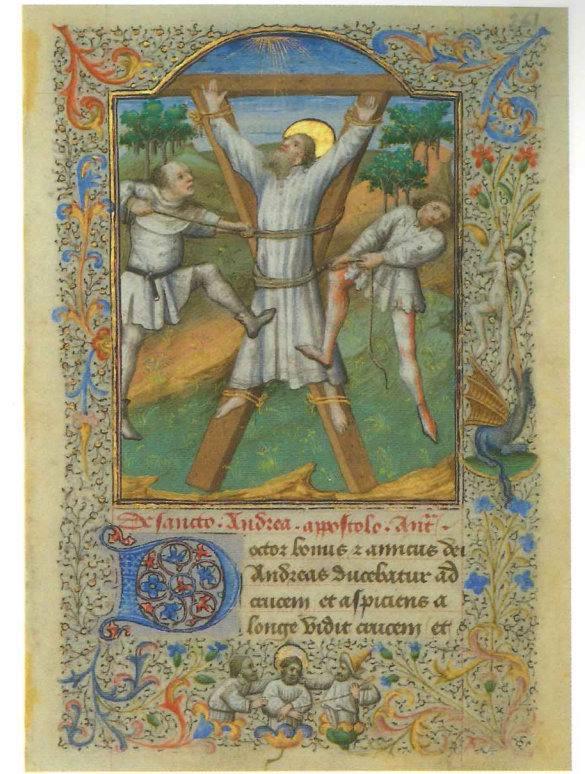 De sancto · Andrea · appostolo · Ant̄ ·
Doctor bonus ⁊ amicus dei
Andreas ducebatur ad
crucem et aspiciens a
longe vidit crucem et